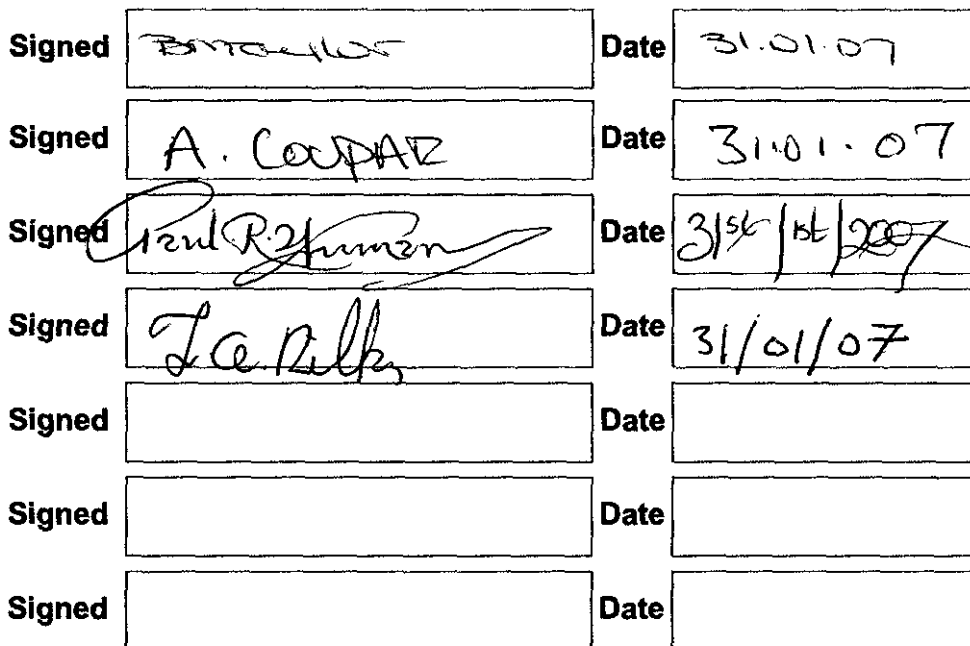 Signed BMTaylor Date 31.01.07
Signed A. COUPAR Date 31.01.07
Signed Paul R. Date 31st/1st/2007
Signed Date 31/01/07
Signed Date
Signed Date
Signed Date